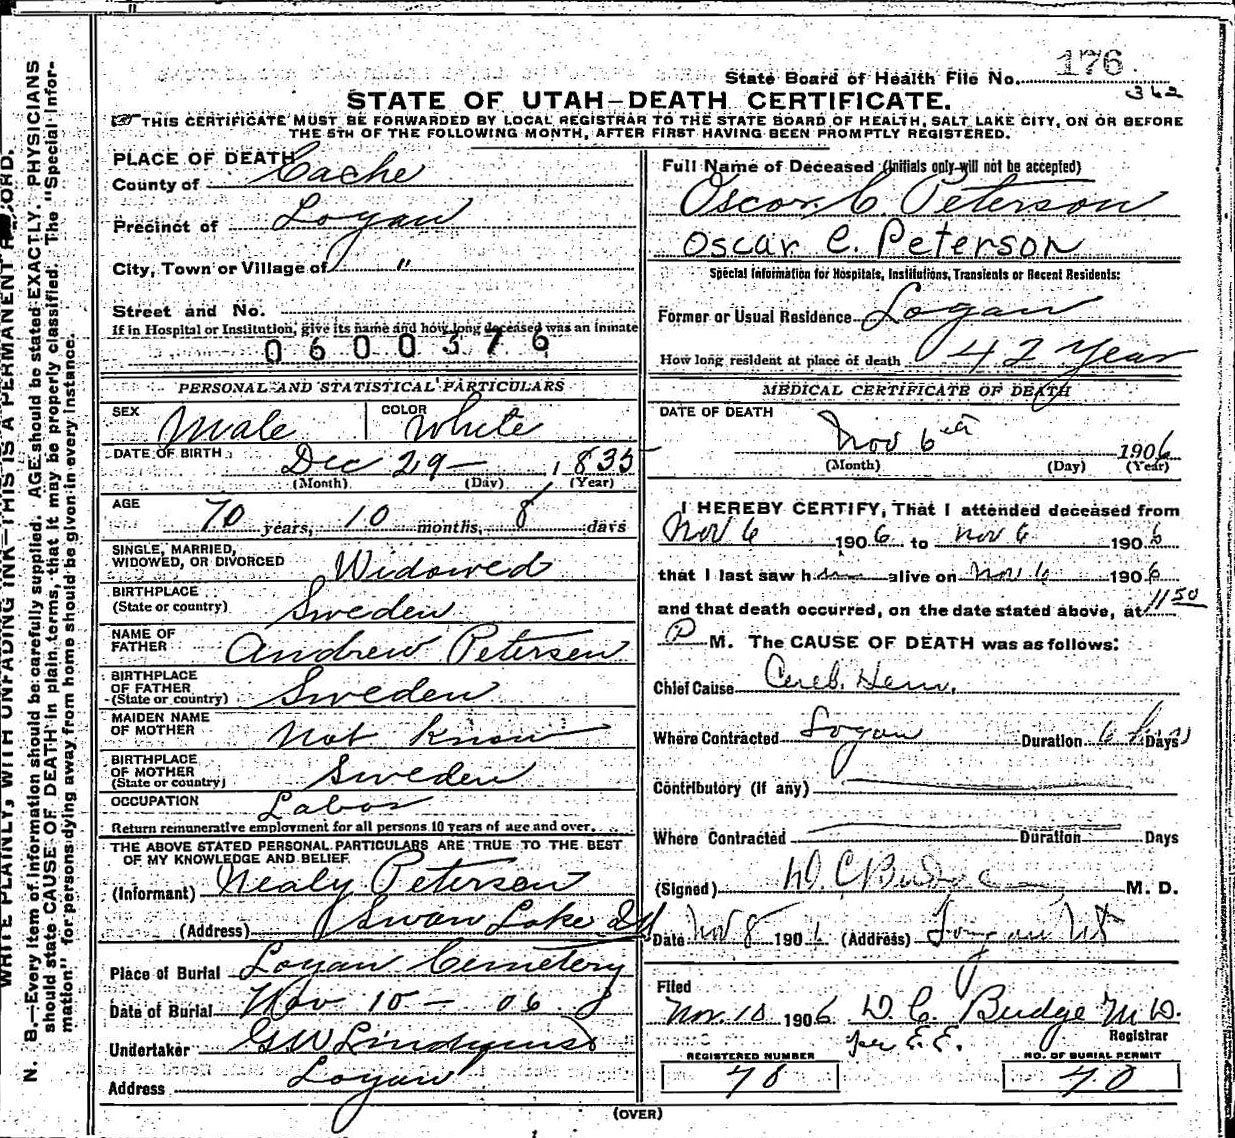 WRITE PLAINLY, WITH UNFADING INK—THIS IS A PERMANENT RECORD.
N. B.—Every item of information should be carefully supplied. AGE should be stated EXACTLY. PHYSICIANS
should state CAUSE OF DEATH in plain terms, that it may be properly classified. The "Special Infor-
mation" for persons dying away from home should be given in every instance.
State Board of Health File No. 176
362
STATE OF UTAH—DEATH CERTIFICATE.
THIS CERTIFICATE MUST BE FORWARDED BY LOCAL REGISTRAR TO THE STATE BOARD OF HEALTH, SALT LAKE CITY, ON OR BEFORE
THE 5TH OF THE FOLLOWING MONTH, AFTER FIRST HAVING BEEN PROMPTLY REGISTERED.
PLACE OF DEATH
County of Cache
Precinct of Logan
City, Town or Village of "
Street and No.
If in Hospital or Institution, give its name and how long deceased was an inmate
0600376
PERSONAL AND STATISTICAL PARTICULARS
SEX Male COLOR White
DATE OF BIRTH Dec 29 — 1835
(Month) (Day) (Year)
AGE 70 years, 10 months, 8 days
SINGLE, MARRIED,
WIDOWED, OR DIVORCED Widowed
BIRTHPLACE
(State or country) Sweden
NAME OF
FATHER Andrew Petersen
BIRTHPLACE
OF FATHER
(State or country) Sweden
MAIDEN NAME
OF MOTHER Not Know
BIRTHPLACE
OF MOTHER
(State or country) Sweden
OCCUPATION Labor
Return remunerative employment for all persons 10 years of age and over.
THE ABOVE STATED PERSONAL PARTICULARS ARE TRUE TO THE BEST
OF MY KNOWLEDGE AND BELIEF.
(Informant) Nealy Petersen
(Address) Swan Lake Id
Place of Burial Logan Cemetery
Date of Burial Nov 10 — 06
Undertaker GW Lindquist
Address Logan
Full Name of Deceased (Initials only will not be accepted)
Oscar C. Peterson
Oscar C. Peterson
Special Information for Hospitals, Institutions, Transients or Recent Residents:
Former or Usual Residence Logan
How long resident at place of death 42 Year
MEDICAL CERTIFICATE OF DEATH
DATE OF DEATH
Nov 6th 1906
(Month) (Day) (Year)
I HEREBY CERTIFY, That I attended deceased from
Nov 6 1906 to Nov 6 1906
that I last saw him alive on Nov 6 1906
and that death occurred, on the date stated above, at 11 50
P M. The CAUSE OF DEATH was as follows:
Chief Cause Cereb. Hem.
Where Contracted Logan Duration 6 hrs Days
Contributory (If any)
Where Contracted Duration Days
(Signed) D. C. Budge M. D.
Date Nov 8 1906 (Address) Logan Ut
Filed
Nov. 10 1906 D. C. Budge M.D.
per E.E. Registrar
REGISTERED NUMBER NO. OF BURIAL PERMIT
70
(OVER)